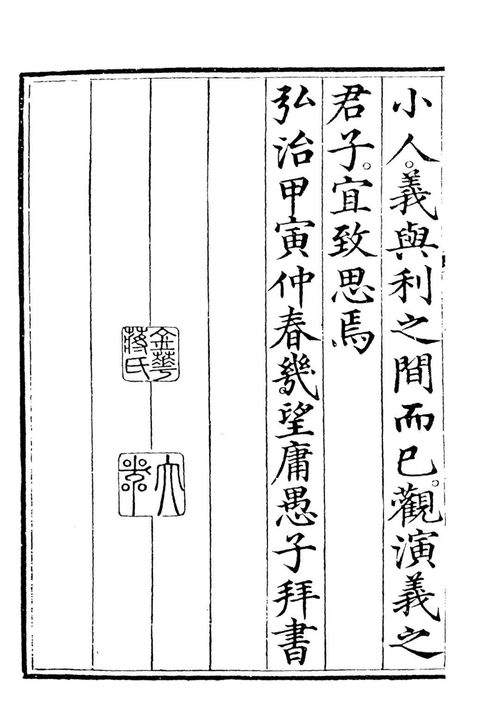 小人。義與利之間而已。觀演義之
君子。宜致思焉
弘治甲寅仲春幾望庸愚子拜書
金華蔣氏
大器